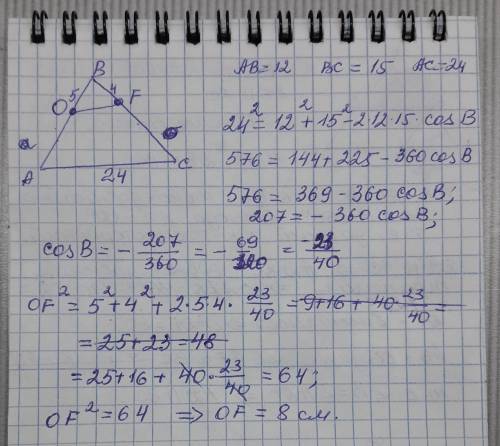 AB=12 BC = 15 AC=24
B
5 4
O F
A C
24
24² = 12² + 15² - 2·12·15·cosB
576 = 144 + 225 - 360 cosB
576 = 369 - 360 cosB;
207 = - 360 cosB;
cosB = - 207/360 = - 69/120 = -23/40
OF² = 5² + 4² + 2·5·4· 23/40 = 9+16 + 40·23/40 =
= 25+23 = 48
= 25+16 + 40·23/40 = 64;
OF² = 64 => OF = 8 см.